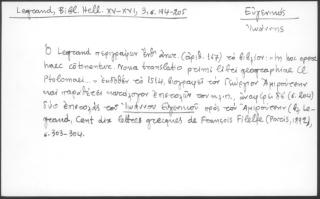 Legrand, Bibl. Hell. XV-XVI, 3, σ. 194-205
Εὐγενικός
Ἰωάννης
Ὁ Legrand περιγράφων ἐνθ' ἀνωτ. (ἀριθ. 167) τὸ βιβλίον: In hoc opere
haec continentur. Nova translatio primi libri geographiae Cl.
Ptolomaei... ἐκδοθὲν τὸ 1514, βιογραφεῖ τὸν Γεώργιον Ἀμιρούτζην
καὶ παραθέτει κατάλογον ἐπιστολῶν του, ἀναφέρει δὲ (σ. 204)
δύο ἐπιστολὰς τοῦ Ἰωάννου Εὐγενικοῦ πρὸς τὸν Ἀμιρούτζην (Le-
grand, Cent dix lettres grecques de François Filelfe (Paris, 1892),
σ. 303-304.